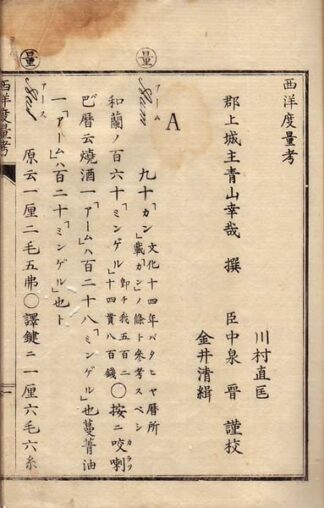 西洋度量考
川村直匡
郡上城主青山幸哉 撰 臣中泉 晉 謹校
金井清緝
A
量
アーム
Aam
九十「カン」文化十四年バタヒヤ暦所載「カン」ノ條參考スベシ
和蘭ノ百六十「ミンゲル」卽チ我五百二十四貫八百錢〇按ニ咬𠺕
巴暦云燒酒一「アーム」ハ百二十八「ミンゲル」也蔓菁油
一「アーム」ハ百二十「ミンゲル」也ト
量
アース
Aas
原云一厘二毛五弗〇譯鍵ニ一厘六毛六糸
西洋度量考